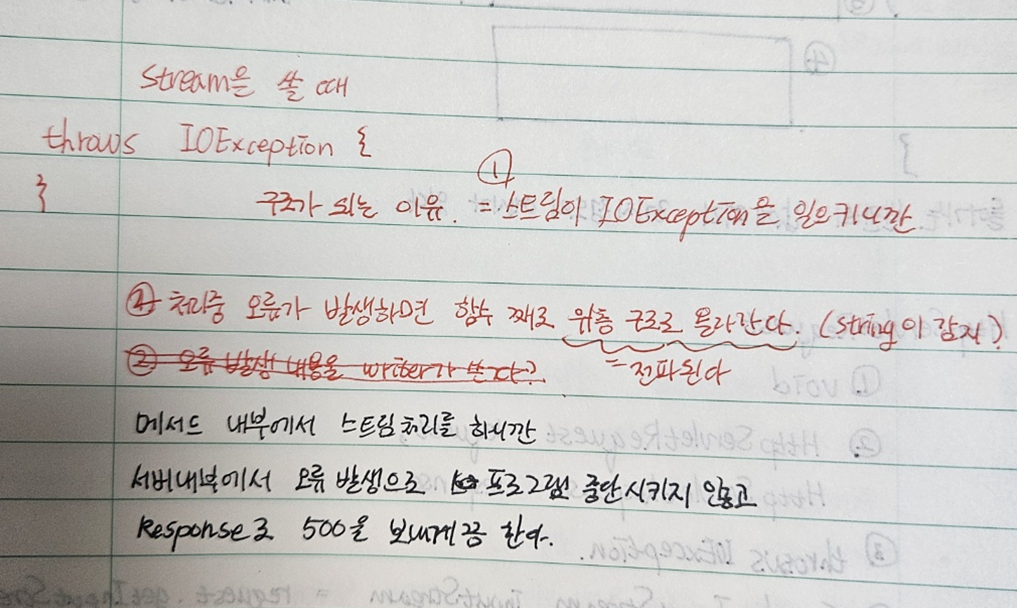 Stream은 쓸 때
throws IOException {
}
①
구조가 되는 이유. = 스트림이 IOException을 일으키니깐
② 처리중 오류가 발생하면 함수 째로 위층 구조로 올라간다. (string이 감지)
= 전파된다
② 오류 발생 내용을 writer가 쓴다?
메서드 내부에서 스트림처리를 하니깐
서버내부에서 오류 발생으로 프로그램 중단시키지 않고
Response로 500을 보내게끔 한다.
④
}
① void
② HttpServletRequest
Http
③ throws IOException.
InputStream = request.getInputStream